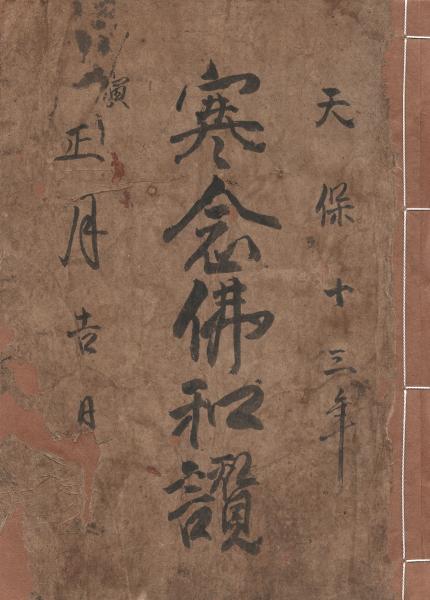 天保十三年
寒念佛和讃
寅正月吉日